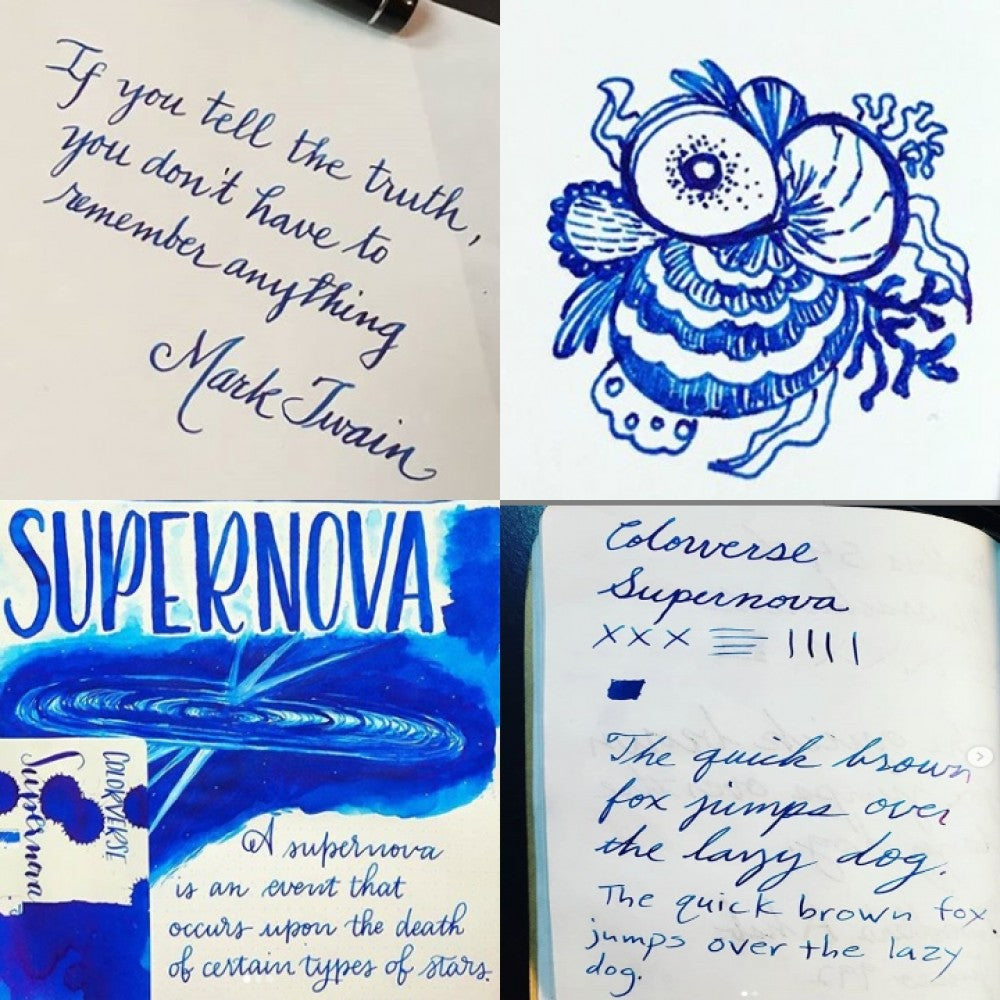 If you tell the truth,
you don't have to
remember anything
Mark Twain
SUPERNOVA
COLORVERSE
Supernova
A supernova
is an event that
occurs upon the death
of certain types of stars.
Colorverse
Supernova
XXX
The quick brown
fox jumps over
the lazy dog.
The quick brown fox
jumps over the lazy
dog.